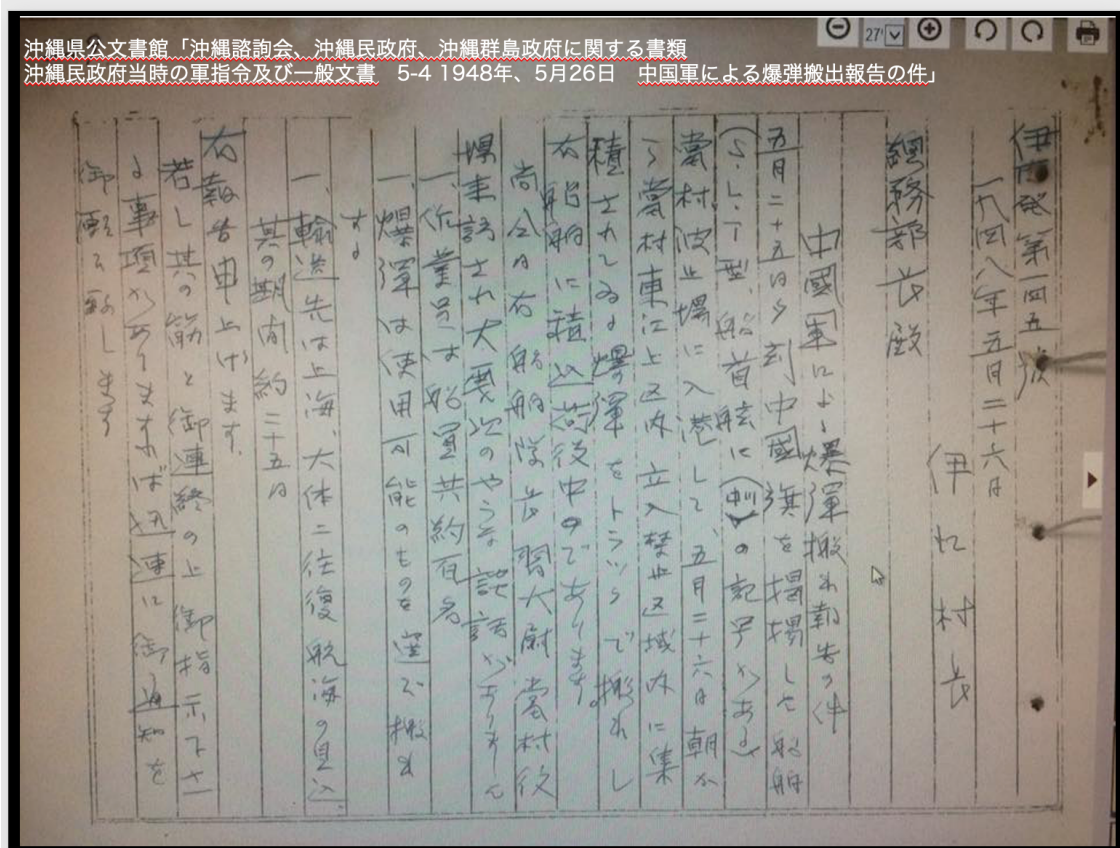 沖縄県公文書館「沖縄諮詢会、沖縄民政府、沖縄群島政府に関する書類
沖縄民政府当時の軍指令及び一般文書　5-4 1948年、5月26日　中国軍による爆弾搬出報告の件」
27
第一四五号
一九四八年五月二十六日
伊江村長
総務部長殿
中國軍による爆弾搬出報告の件
五月二十五日夕刻中國旗を掲揚した船舶
型、船首舷に(中)の記号がある)
當村波止場に入港して、五月二十六日朝か
ら當村東江上区内立入禁止区域内に集
積されてゐる爆弾をトラックで搬出し
右船舶に積込荷役中であります。
尚今日右船舶隊長 大尉當村役
場来訪され大要次のやうな談話がありました
一、作業員は船員共約百名
一、爆弾は使用可能のものを 搬出
する
一、輸送先は上海、大体二往復航海の見込
其の期間約二十五日
右報告申上げます。
若し其の筋と御連絡の上御指示下さ
る事項がありますれば迅速に御通知を
御願ひ致します